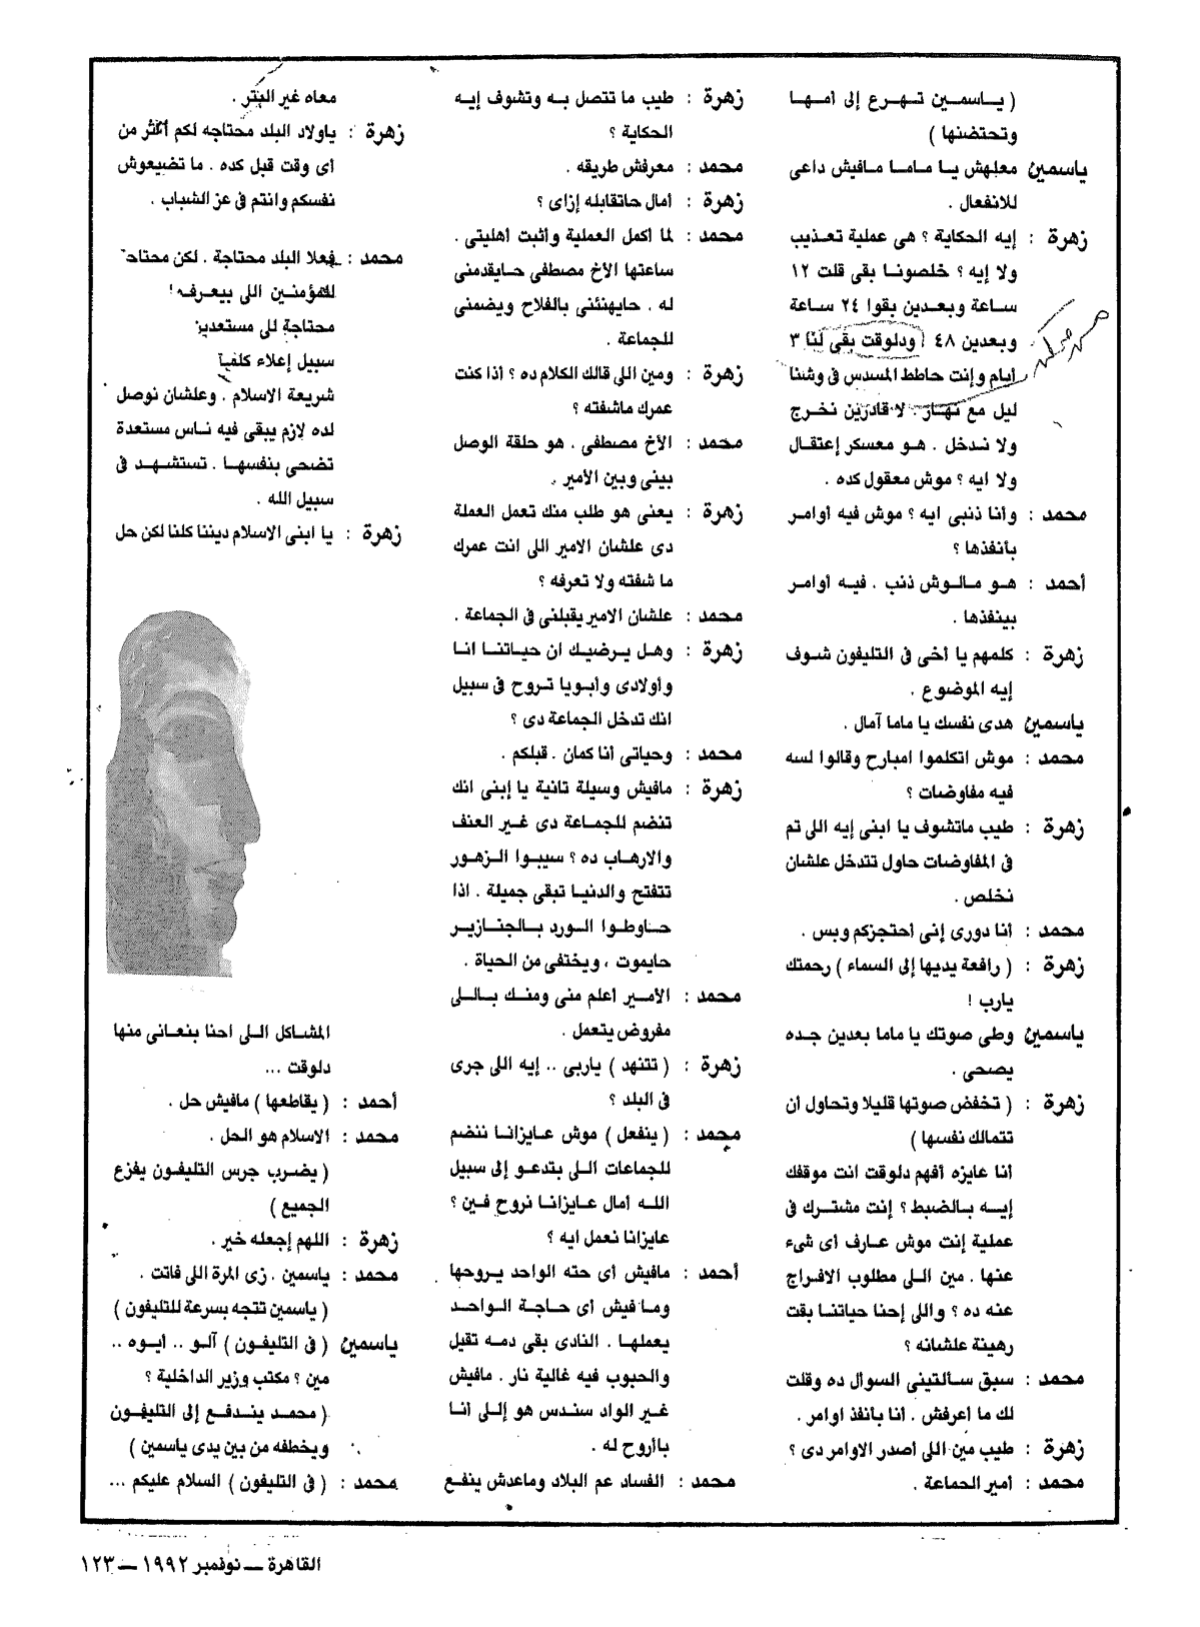 ( ياسمين تهرع إلى أمها
وتحتضنها )
ياسمين معلهش يا ماما مافيش داعى
للانفعال .
زهرة : إيه الحكاية ؟ هى عملية تعذيب
ولا إيه ؟ خلصونا بقى قلت ١٢
ساعة وبعدين بقوا ٢٤ ساعة
وبعدين ٤٨ ودلوقت بقى لنا ٣
أيام وإنت حاطط المسدس فى وشنا
ليل مع نهار . لا قادرين نخرج
ولا ندخل . هو معسكر إعتقال
ولا ايه ؟ موش معقول كده .
محمد : وأنا ذنبى ايه ؟ موش فيه أوامر
بأنفذها ؟
أحمد : هو مالوش ذنب . فيه أوامر
بينفذها .
زهرة : كلمهم يا أخى فى التليفون شوف
إيه الموضوع .
ياسمين هدى نفسك يا ماما آمال .
محمد : موش اتكلموا امبارح وقالوا لسه
فيه مفاوضات ؟
زهرة : طيب ماتشوف يا ابنى إيه اللى تم
فى المفاوضات حاول تتدخل علشان
نخلص .
محمد : أنا دورى إنى أحتجزكم وبس .
زهرة : ( رافعة يديها إلى السماء ) رحمتك
يارب !
ياسمين وطى صوتك يا ماما بعدين جده
يصحى .
زهرة : ( تخفض صوتها قليلا وتحاول ان
تتمالك نفسها )
أنا عايزه أفهم دلوقت انت موقفك
إيه بالضبط ؟ إنت مشترك فى
عملية إنت موش عارف أى شىء
عنها . مين اللى مطلوب الافراج
عنه ده ؟ واللى إحنا حياتنا بقت
رهينة علشانه ؟
محمد : سبق سألتينى السؤال ده وقلت
لك ما أعرفش . انا بأنفذ اوامر .
زهرة : طيب مين اللى أصدر الاوامر دى ؟
محمد : أمير الجماعة .
زهرة : طيب ما تتصل به وتشوف إيه
الحكاية ؟
محمد : معرفش طريقه .
زهرة : أمال حاتقابله إزاى ؟
محمد : لما أكمل العملية وأثبت أهليتى .
ساعتها الأخ مصطفى حايقدمنى
له . حايهنئنى بالفلاح ويضمنى
للجماعة .
زهرة : ومين اللى قالك الكلام ده ؟ اذا كنت
عمرك ماشفته ؟
محمد : الأخ مصطفى . هو حلقة الوصل
بينى وبين الأمير .
زهرة : يعنى هو طلب منك تعمل العملة
دى علشان الامير اللى انت عمرك
ما شفته ولا تعرفه ؟
محمد : علشان الامير يقبلنى فى الجماعة .
زهرة : وهل يرضيك ان حياتنا انا
وأولادى وأبويا تروح فى سبيل
انك تدخل الجماعة دى ؟
محمد : وحياتى أنا كمان . قبلكم .
زهرة : مافيش وسيلة تانية يا إبنى انك
تنضم للجماعة دى غير العنف
والارهاب ده ؟ سيبوا الزهور
تتفتح والدنيا تبقى جميلة . اذا
حاوطوا الورد بالجنازير
حايموت ، ويختفى من الحياة .
محمد : الامير أعلم منى ومنك باللى
مفروض يتعمل .
زهرة : ( تتنهد ) ياربى .. إيه اللى جرى
فى البلد ؟
محمد : ( ينفعل ) موش عايزانا ننضم
للجماعات اللى بتدعو إلى سبيل
الله أمال عايزانا نروح فين ؟
عايزانا نعمل ايه ؟
أحمد : مافيش أى حته الواحد يروحها
وما فيش أى حاجة الواحد
يعملها . النادى بقى دمه تقيل
والحبوب فيه غالية نار . مافيش
غير الواد سندس هو إللى أنا
باأروح له .
محمد : الفساد عم البلاد وماعدش ينفع
معاه غير البتر .
زهرة : ياولاد البلد محتاجه لكم أكثر من
أى وقت قبل كده . ما تضيعوش
نفسكم وانتم فى عز الشباب .
محمد : فعلا البلد محتاجة . لكن محتاجه
للمؤمنين اللى بيعرفوا
محتاجة للى مستعدين
سبيل إعلاء كلمة
شريعة الاسلام . وعلشان نوصل
لده لازم يبقى فيه ناس مستعدة
تضحى بنفسها . تستشهد فى
سبيل الله .
زهرة : يا ابنى الاسلام ديننا كلنا لكن حل
المشاكل اللى احنا بنعانى منها
دلوقت ...
أحمد : ( يقاطعها ) مافيش حل .
محمد : الاسلام هو الحل .
( يضرب جرس التليفون يفزع
الجميع )
زهرة : اللهم إجعله خير .
محمد : ياسمين . زى المرة اللى فاتت .
( ياسمين تتجه بسرعة للتليفون )
ياسمين ( فى التليفون ) آلو .. أيوه ..
مين ؟ مكتب وزير الداخلية ؟
( محمد يندفع إلى التليفون
ويخطفه من بين يدى ياسمين )
محمد : ( فى التليفون ) السلام عليكم ...
القاهرة ــ نوفمبر ١٩٩٢ ــ ١٢٣